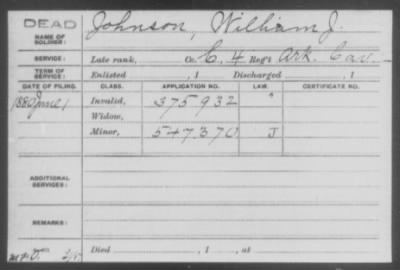 DEAD
NAME OF SOLDIER: Johnson, William J.
SERVICE: Late rank, Co. C, 4 Reg't Ark. Cav.
TERM OF SERVICE: Enlisted , 1 Discharged , 1
DATE OF FILING. CLASS. APPLICATION NO. LAW. CERTIFICATE NO.
1880 June 1 Invalid, 375932
Widow,
Minor, 547370 J
ADDITIONAL SERVICES:
REMARKS:
Died , 1 , at